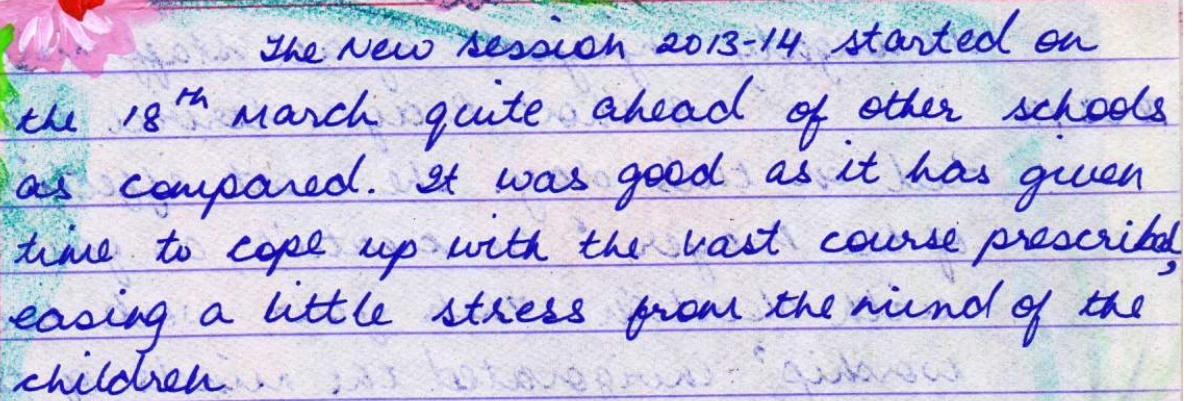 The New session 2013-14 started on
the 18th March quite ahead of other schools
as compared. It was good as it has given
time to cope up with the vast course prescribed,
easing a little stress from the mind of the
children.